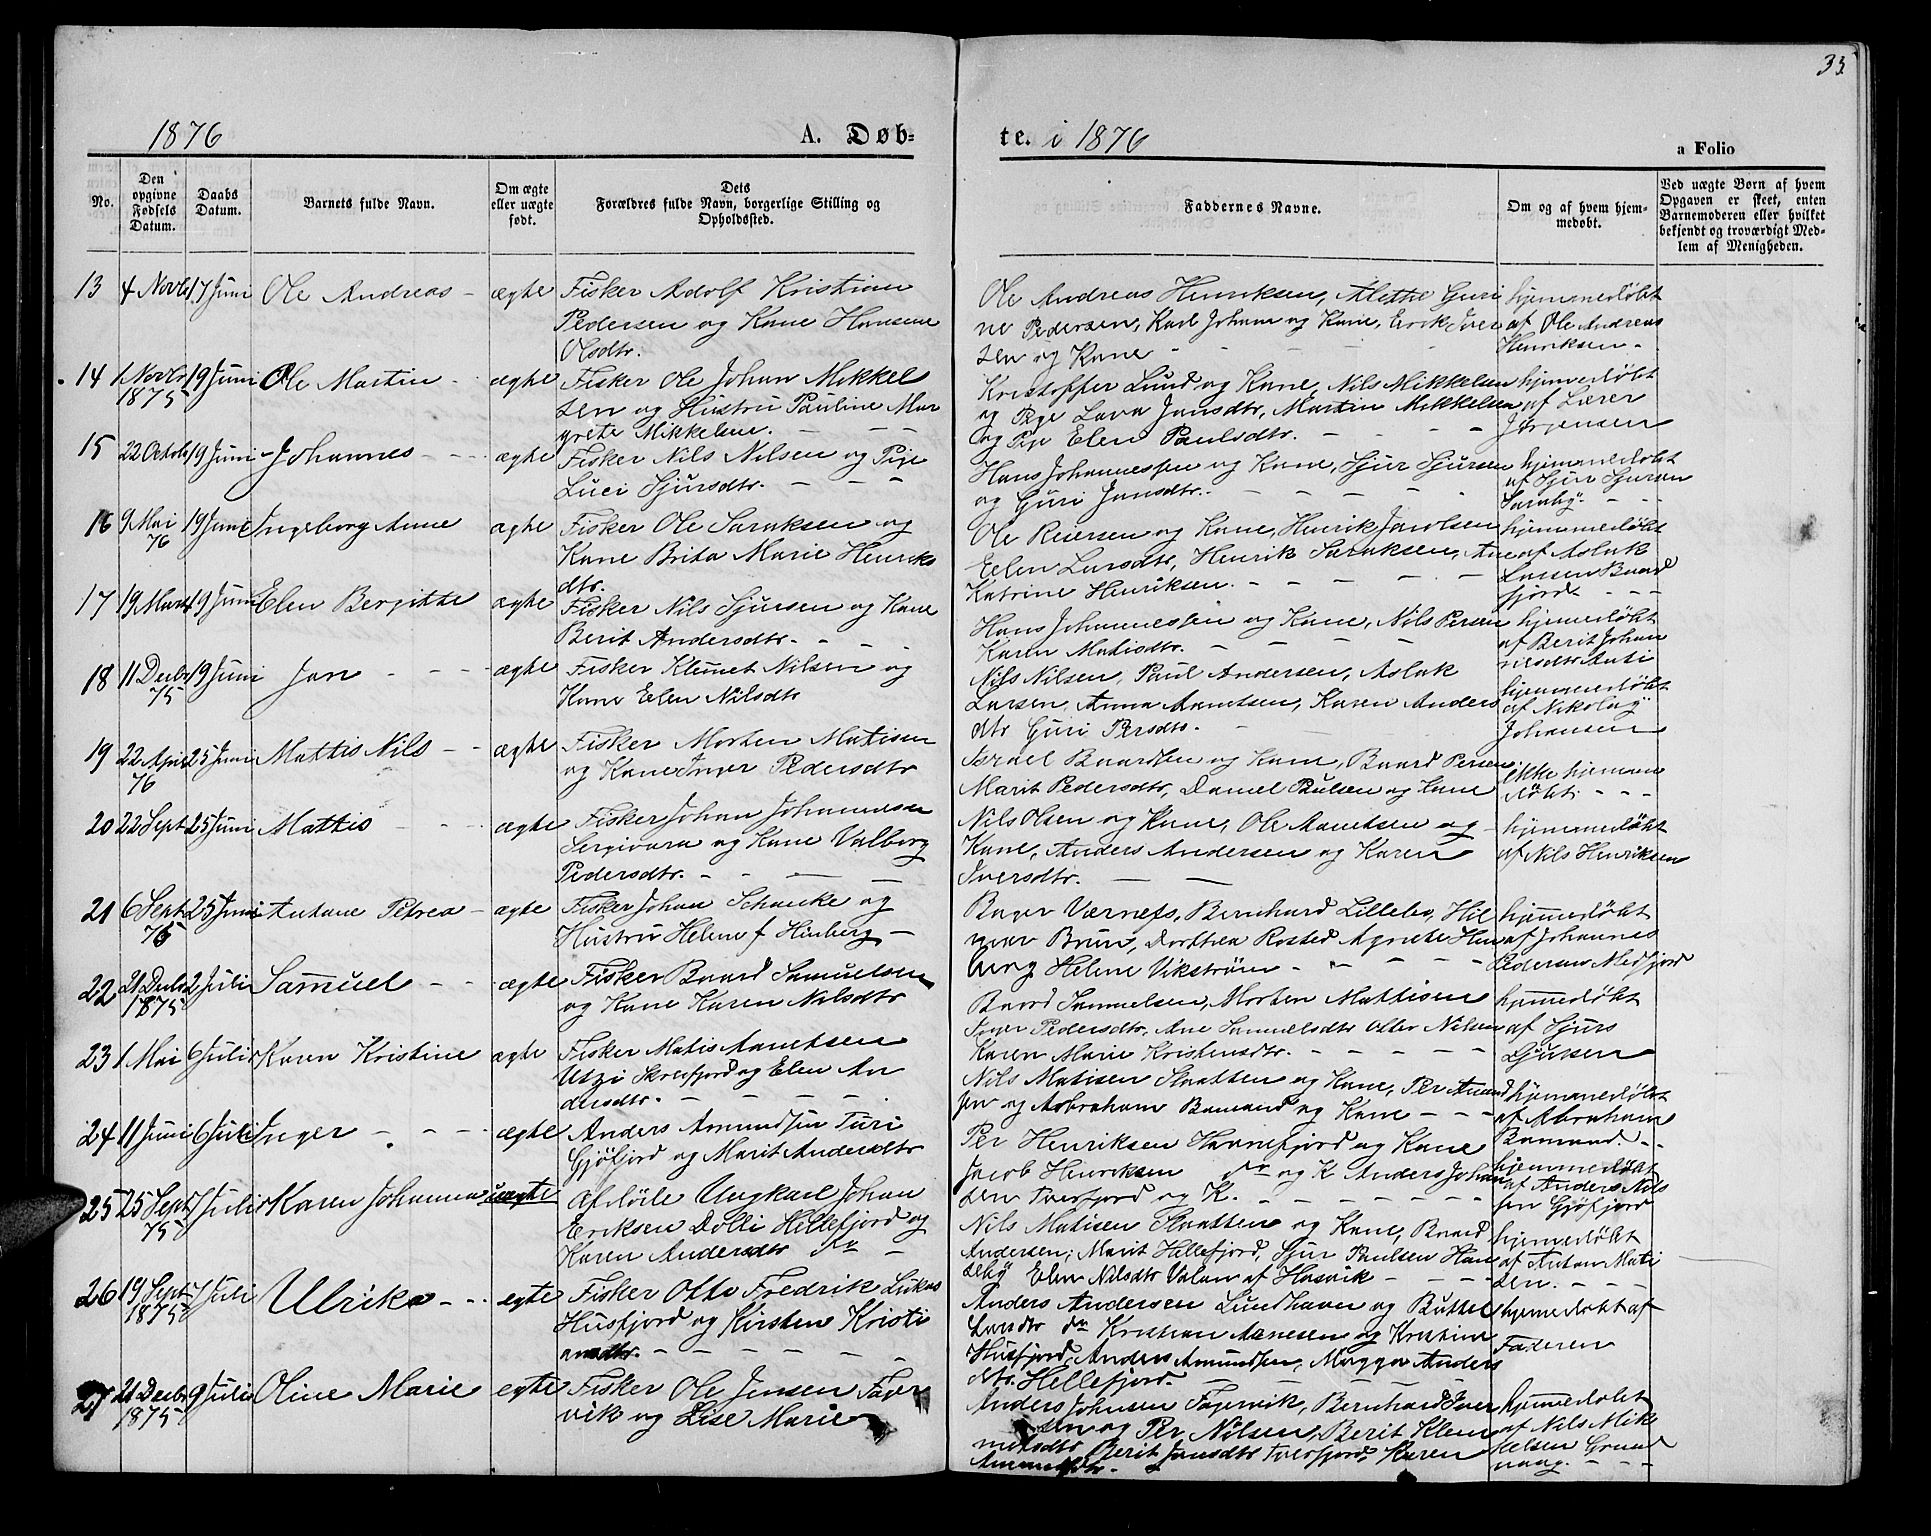 35
1876
A. Døb-
te. i 1876
a Folio
No.
Den opgivne Fødsels Datum.
Daabs Datum.
Barnets fulde Navn.
Om ægte eller uægte født.
Dets Forældres fulde Navn, borgerlige Stilling og Opholdssted.
Faddernes Navne.
Om og af hvem hjem-medøbt.
Ved uægte Børn af hvem Opgaven er skeet, enten Barnemoderen eller hvilket bekjendt og troværdigt Med-lem af Menigheden.
13 4 Novbr 17 Juni Ole Andreas - ægte Fisker Adolf Kristian
Pedersen og Kone Hansine
Olsdtr.
Ole Andreas Henriksen, Alethe Guri
ne Pedersen, Karl Johan og Kone, Erik Iver
sen og Kone - - - -
hjemmedøbt
af Ole Andreas
Henriksen -
14 1 Novbr 1875 19 Juni Ole Martin - ægte Fisker Ole Johan Mikkel
sen og Hustru Pauline Mar
grete Mikkelsen. - - -
Kristoffer Lund og Kone, Nils Mikkelsen
og Pige Lava Jansdtr, Martin Mikkelsen
og Pige Elen Paulsdtr. - - - -
hjemedøbt
af Lærer
Jørgensen
15 22 Octob 19 Juni Johannes - - - ægte Fisker Nils Nilsen og Pige
Luci Sjursdtr. - - -
Hans Johannessen og Kone, Sjur Sjursen
og Guri Jansdtr. - - - - -
hjemmedøbt
af Sjur Sjursen
Saraby. - -
16 9 Mai 76 19 Juni Ingeborg Anne ægte Fisker Ole Saraksen og
Kone Brita Marie Henriks
dtr.
Ole Reiersen og Kone, Henrik Jacobsen
Elen Larsdtr, Henrik Saraksen, An
Katrine Henriksen. - - - - -
hjemmedøbt
af Aslak
Larsen Baard
fjord - - -
17 19 Mars 19 Juni Elen Bergitte ægte Fisker Nils Sjursen og Kone
Berit Andersdtr. - -
Hans Johannessen og Kone, Nils Persen
Karen Matisdtr. - - - -
hjemedøbt
af Berit Johan
nesdtr
18 11 Decbr 75 19 Juni Jan - - - ægte Fisker Klemet Nilsen og
Kone Elen Nilsdtr
Nils Nilsen, Paul Andersen, Aslak
Larsen, Anna Amundsen, Karen Anders
dtr Guri Persdtr. -
hjemmedøbt
af Nikolay
Johansen
19 22 April 76 25 Juni Mattis Nils - - ægte Fisker Morten Matisen
og Kone Inger Pedersdtr
Israel Baardsen og Kone, Baard Persen
Marit Pedersdtr, Daniel Paulsen og Kone
ikke hjemme
døbt. - - -
20 22 Sept 25 Juni Mattis - - - ægte Fisker Johan Johannesen
Sergivara og Kone Valborg
Pedersdtr. - - - -
Nils Olsen og Kone, Ole Aanetsen og
Kone, Anders Andersen og Karen
Iversdtr. - -
hjemmedøbt
af Nils Henriksen
21 6 Sept 75 25 Juni Antone Petrea - ægte Fisker Johan Schanke og
Hustru Helene f Hinberg -
Bager Værnefs, Bernhard Lillebo, Hil
mar Brun, Dorthea Rosted Agnete Hin
berg Helene Vikstrøm - - - - -
hjemmedøbt
af Johannes
Pedersen Medfjord
22 21 Decbr 1875 2 Juli Samuel - - ægte Fisker Baard Samuelsen
og Kone Karen Nilsdtr
Baard Samuelsen, Morten Mattisen
Inger Pedersdtr, Ane Samuelsdtr Ole Nilsen
Karen Marie Kristensdtr. - - - - -
hjemmedøbt
af Sjurs
Sjursen
23 1 Mai 6 Juli Karen Kristine ægte Fisker Matis Aanetsen
Utzi Skreifjord og Elen An
dersdtr. - - - -
Nils Matisen Skaatten og Kone, Per Amund
sen og Abraham Bamand og Kone - - -
hjemmedøbt
af Abraham
Bamand. - -
24 11 Juni 6 Juli Inger - - - - ægte Anders Amundsen Turi
Gjøfjord og Marit Andersdtr
Per Henriksen Havnefjord og Kone
Jacob Henriksen do og K Anders Johan
sen Tverfjord og K. - - - - -
hjemmedøbt
af Anders Nils
sen Gjøfjord
25 25 Sept 75 7 Juli Karen Johanna uægte Afdøde Ungkarl Johan
Eriksen Dolli Hellefjord og
Karen Andersdtr do -
Nils Matisen Skaatten og Kone, Baard
Andersen, Marit Hellefjord, Sjur Paulsen Han
seby Elen Nilsdtr Valan af Hasvik - - - -
hjemedøbt
af Anton Mati
sen. - - - -
26 19 Sept 1875 7 Juli Ulrika - - egte Fisker Otto Fredrik Lukas
Husfjord og Kirsten Kristi
ansdtr. - - - - - -
Anders Andersen Lundhavn og Buttel
Larsdtr do Kristian Arnesen og Kristine
Husfjord, Anders Amundsen, Magga Anders
dtr. Hellefjord. - - - -
hjemedøbt af
Faderen
27 21 Decbr 1875 9 Juli Oline Marie egte Fisker Ole Jensen Fager
vik og Lise Marie
Anders Johnsen Fagervik, Bernhard Iver
sen og Per Nilsen, Berit Klem
metsdtr Berit Jansdtr Tverfjord, Karen
Amundsdtr. -
hjemmedøbt
af Nils Mik
kelsen Grund
vaag. - - -